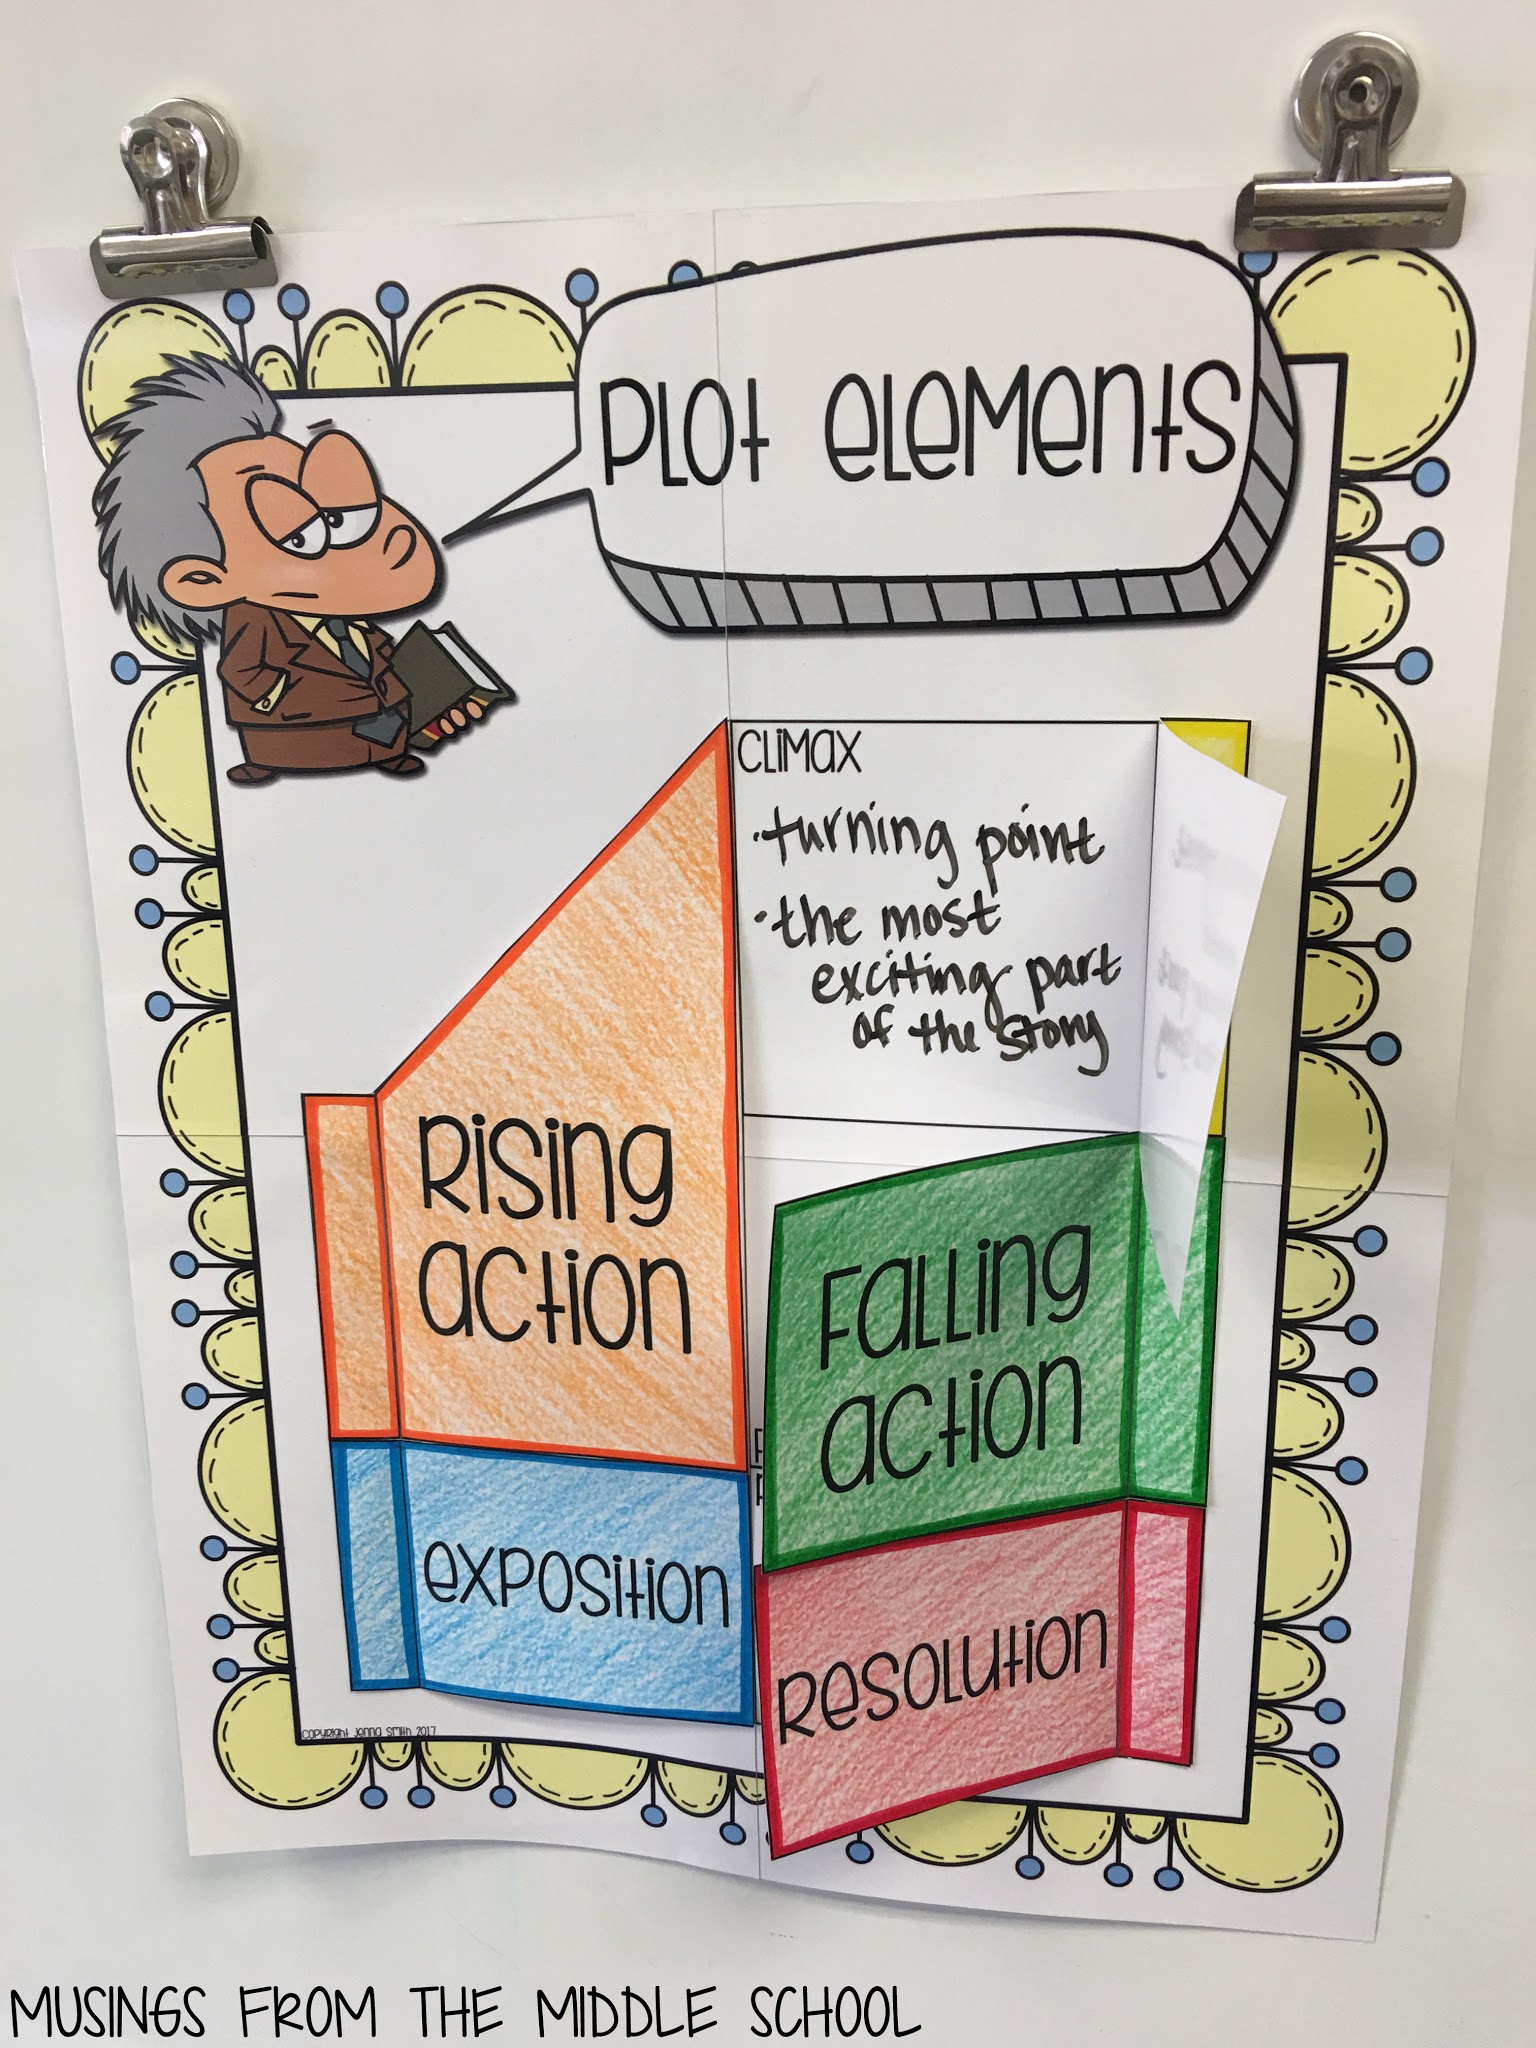 PLOT ELEMENTS
CLIMAX
• turning point
• the most
exciting part
of the story
RISING
ACTION
FALLING
ACTION
EXPOSITION
RESOLUTION
COPYRIGHT JENNA SMITH 2017
MUSINGS FROM THE MIDDLE SCHOOL